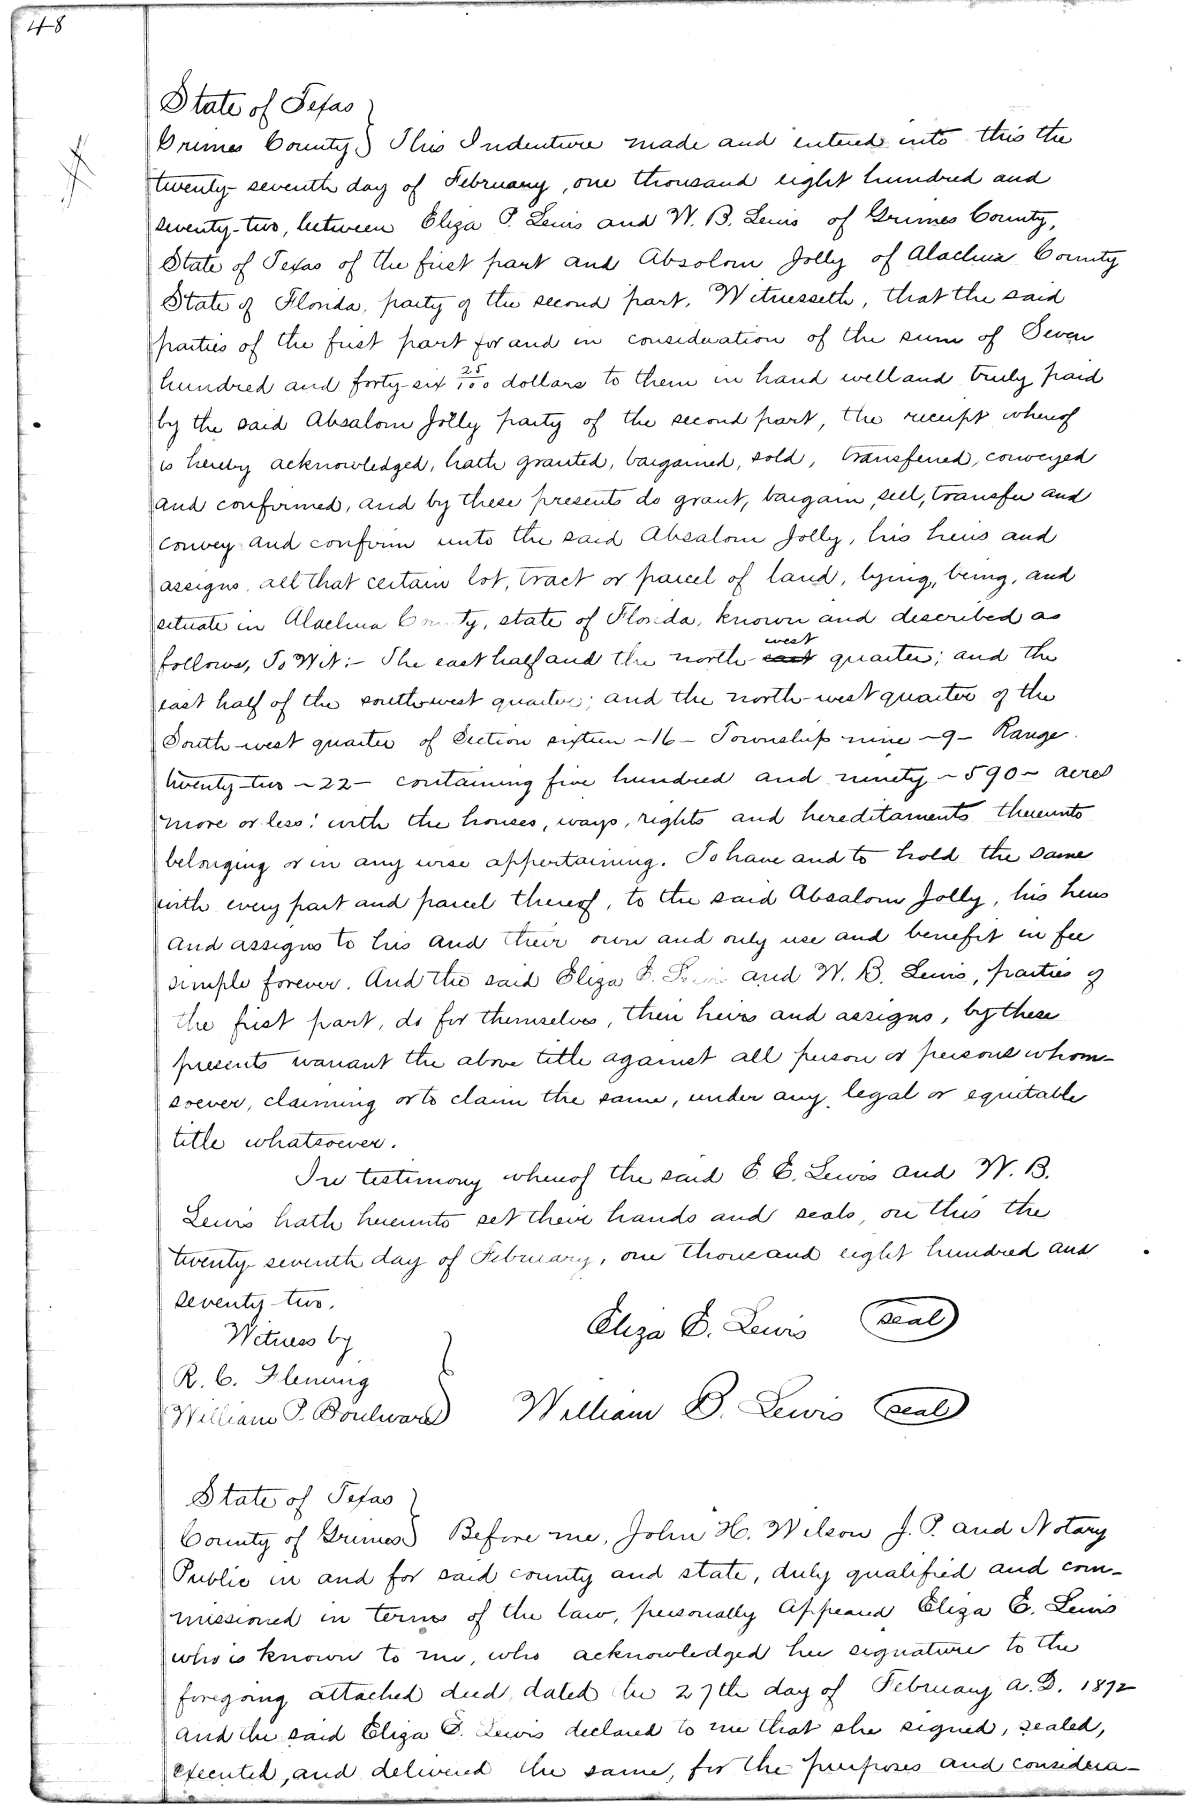 48
State of Texas }
Grimes County } This Indenture made and entered into this the
twenty-seventh day of February, one thousand eight hundred and
seventy-two, between Eliza P. Lewis and W. B. Lewis of Grimes County,
State of Texas of the first part and Absolom Jolly of Alachua County
State of Florida, party of the second part, Witnesseth, that the said
parties of the first part for and in consideration of the sum of Seven
hundred and forty-six 25/100 dollars to them in hand well and truly paid
by the said Absalom Jolly party of the second part, the receipt whereof
is hereby acknowledged, hath granted, bargained, sold, transferred, conveyed
and confirmed, and by these presents do grant, bargain, sell, transfer and
convey and confirm unto the said Absalom Jolly, his heirs and
assigns, all that certain lot, tract or parcel of land, lying, being, and
situate in Alachua County, state of Florida, known and described as
follows, To Wit:- The east half and the north-west east quarter; and the
east half of the south-west quarter; and the north-west quarter of the
South-west quarter of Section sixteen -16- Township nine -9- Range
twenty-two -22- containing five hundred and ninety -590- acres
more or less: with the houses, ways, rights and hereditaments thereunto
belonging or in any wise appertaining. To have and to hold the same
with every part and parcel thereof, to the said Absalom Jolly, his heirs
and assigns to his and their own and only use and benefit in fee
simple forever. And the said Eliza E. Lewis and W. B. Lewis, parties of
the first part, do for themselves, their heirs and assigns, by these
presents warrant the above title against all person or persons whom-
soever, claiming or to claim the same, under any legal or equitable
title whatsoever.
In testimony whereof the said E. E. Lewis and W. B.
Lewis hath hereunto set their hands and seals, on this the
twenty-seventh day of February, one thousand eight hundred and
seventy-two.
Witness by
Eliza E. Lewis (seal)
R. C. Fleming
William P. Boulware }
William B. Lewis (seal)
State of Texas }
County of Grimes } Before me, John H. Wilson J. P. and Notary
Public in and for said county and state, duly qualified and com-
missioned in terms of the law, personally appeared Eliza E. Lewis
who is known to me, who acknowledged her signature to the
foregoing attached deed, dated the 27th day of February A.D. 1872
and the said Eliza E. Lewis declared to me that she signed, sealed,
executed, and delivered the same, for the purposes and considera-